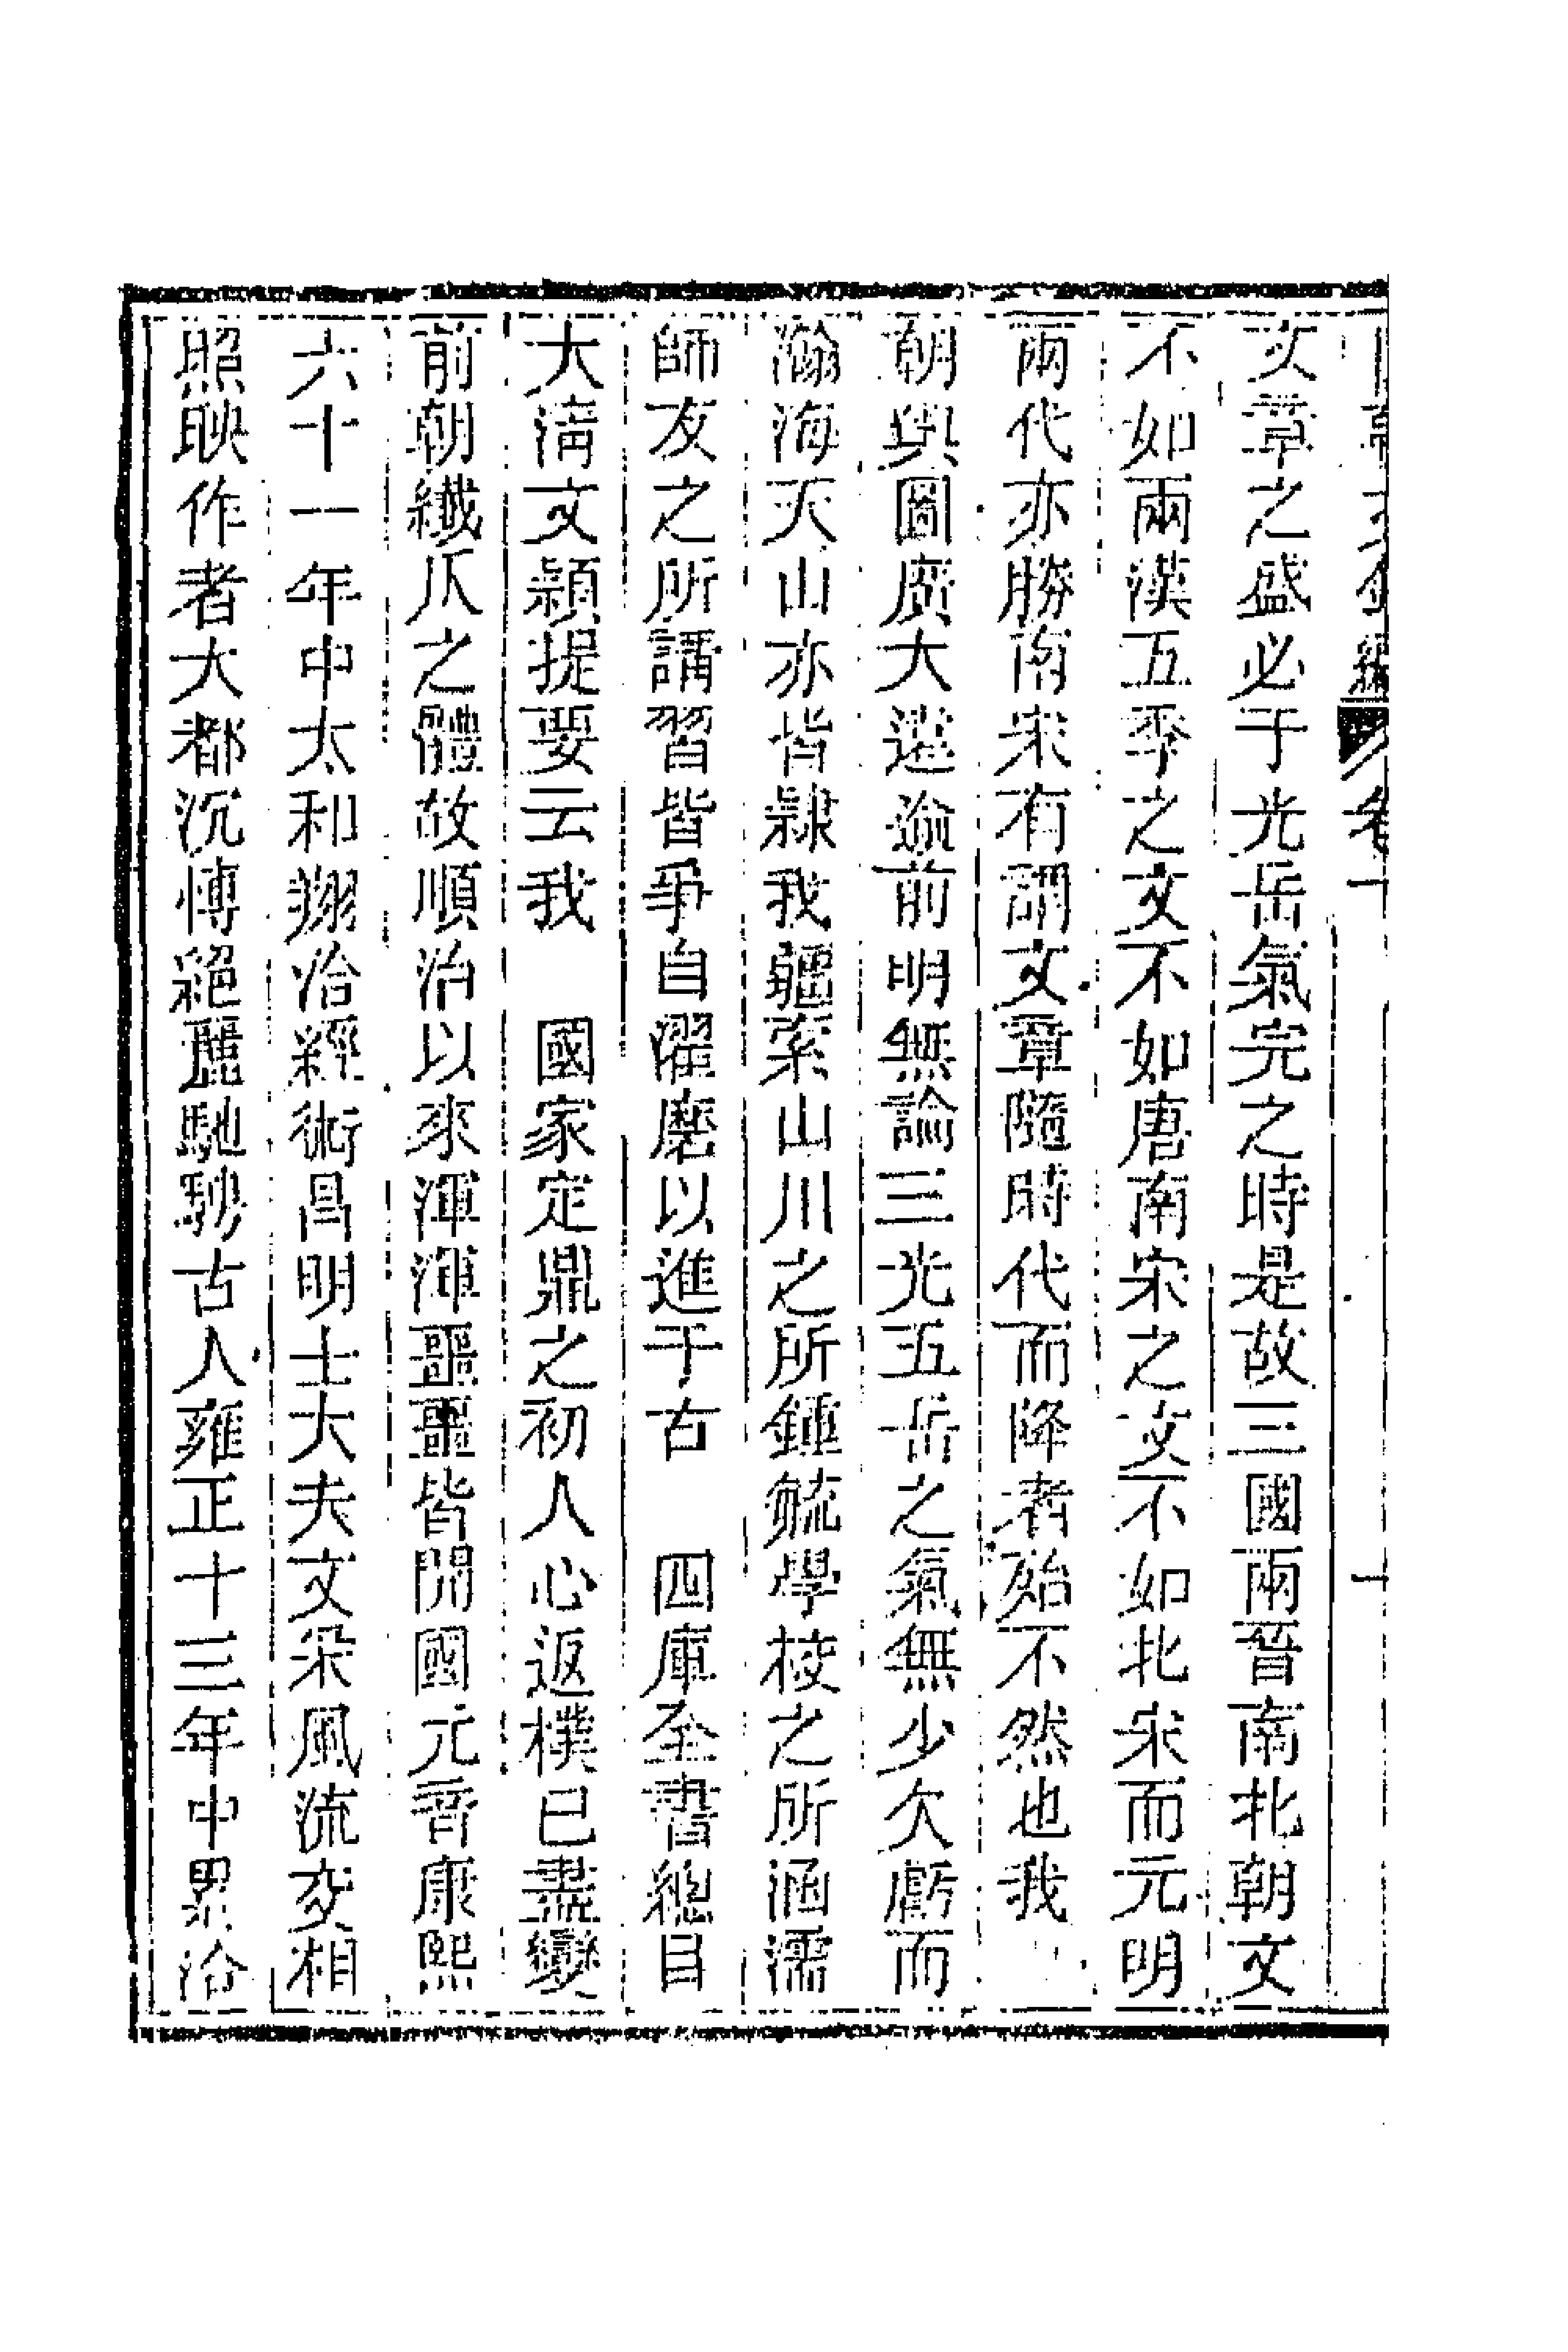 文章之盛必于光岳氣完之時是故三國兩晉南北朝文
不如兩漢五季之文不如唐南宋之文不如北宋而元明
兩代亦勝南宋有謂文章隨時代而降者殆不然也我
朝輿圖廣大遠逾前明無論三光五岳之氣無少欠虧而
瀚海天山亦皆隷我疆索山川之所鍾毓學校之所涵濡
師友之所講習皆爭自濯磨以進于古　四庫全書總目
大淸文穎提要云我　國家定鼎之初人心返樸已盡變
前朝纎仄之體故順治以來渾渾噩噩皆開國元音康熙
六十一年中太和翔洽經術昌明士大夫文采風流交相
照映作者大都沉博絕麗馳騁古人雍正十三年中累洽
卷十
十